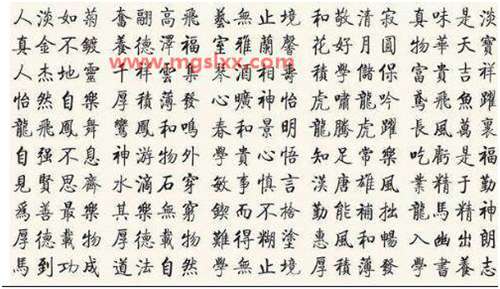 人淡如菊 奮翮高飛 藝無止境 和敬清寂 真味是淡
真金不鍍 養德澤福 室雅蘭馨 花好月圓 物華天寶
www.mgslxx.com
人杰地靈 千祥雲集 琴 酒相壽 學儲保 富貴吉祥
怡然自樂 厚積薄發 心曠神怡 虎嘯龍吟 鳶飛魚躍
龍飛鳳舞 鸞鳳和鳴 春和景明 龍騰虎躍 長風萬裏
自强不息 神游物外 學貴心悟 知足常樂 吃虧是福
見賢思齊 水滴石穿 敏事慎言 漢唐雄風 業精于勤
爲善最樂 其樂無窮 鍥而不捨 勤能補拙 龍馬精神
厚德載物 厚德載物 難得糊塗 惠風和暢 入幽出朗
馬到功成 道法自然 學無止境 厚積薄發 學書養志